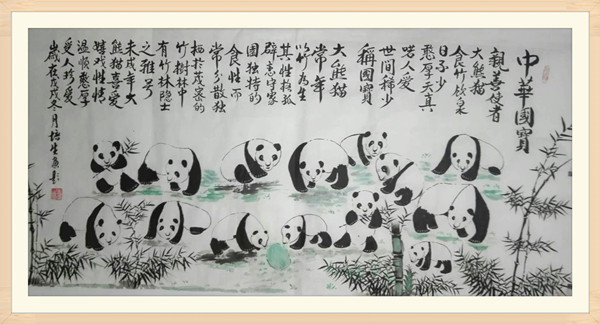 中華國寶
親善使者
大熊貓
食竹飲泉
日不少
憨厚天真
人愛
世間稀少
稱國寶
大熊貓
常年
以竹為生
其性孤
辟志守家
園独特的
食性而
常分散独
栖於茂密的
竹樹林中
有竹林隱士
之雅号
未成年大
熊貓喜愛
嬉戲性情
温順憨厚
受人珍愛
歲在戊戌冬月培生